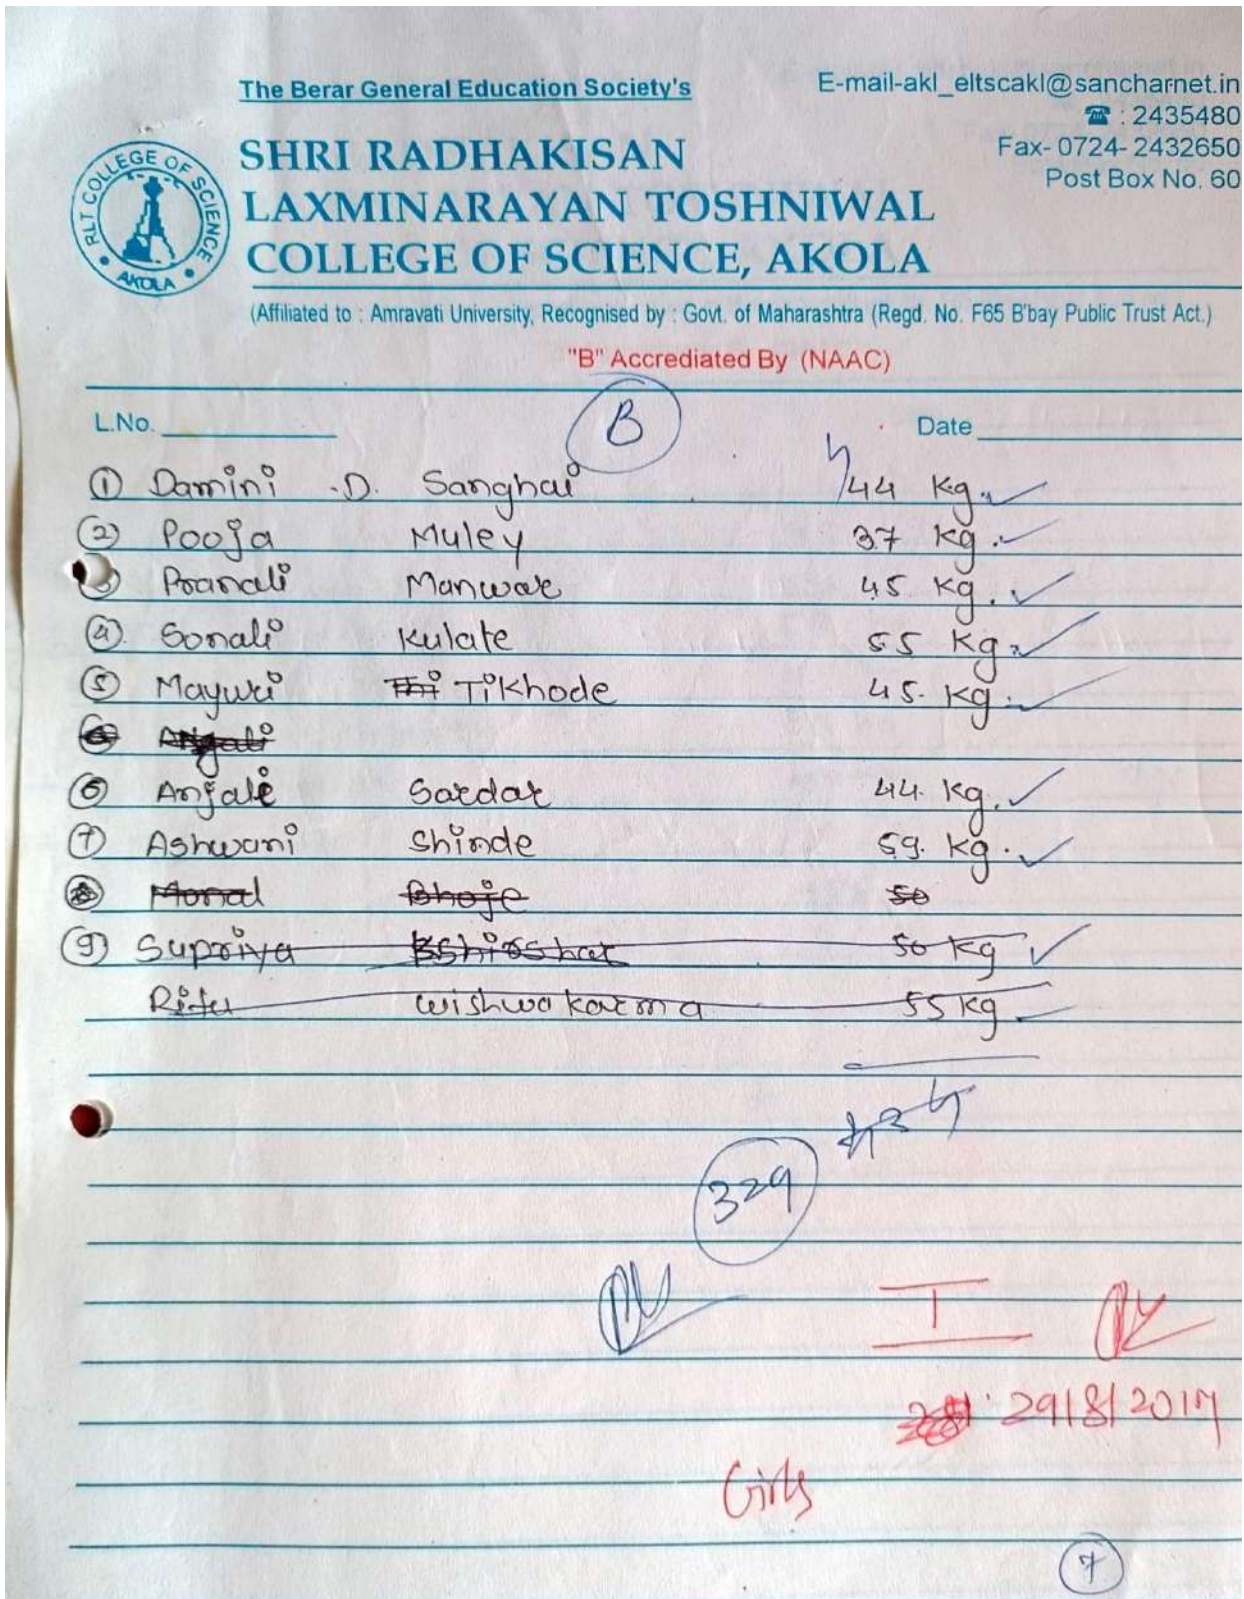 The Berar General Education Society's
E-mail-akl_eltscakl@sancharnet.in
☎ : 2435480
Fax- 0724- 2432650
Post Box No. 60
RLT COLLEGE OF SCIENCE
AKOLA
SHRI RADHAKISAN
LAXMINARAYAN TOSHNIWAL
COLLEGE OF SCIENCE, AKOLA
(Affiliated to : Amravati University, Recognised by : Govt. of Maharashtra (Regd. No. F65 B'bay Public Trust Act.)
"B" Accrediated By (NAAC)
L.No. B Date
① Damini .D. Sanghai 44 Kg.
② Pooja Muley 37 Kg.
Pranali Manwar 45 Kg.
④ Sonali Kulate 55 Kg.
⑤ Mayuri Tikhode 45. Kg.
Anjali
⑥ Anjali Sardar 44. Kg.
⑦ Ashwani Shinde 59. Kg.
Monal Bhoje 50
⑨ Supriya Kshirshar 50 Kg
Ritu wishwakarma 55 Kg
329
I
29/8/2017
Girls
7